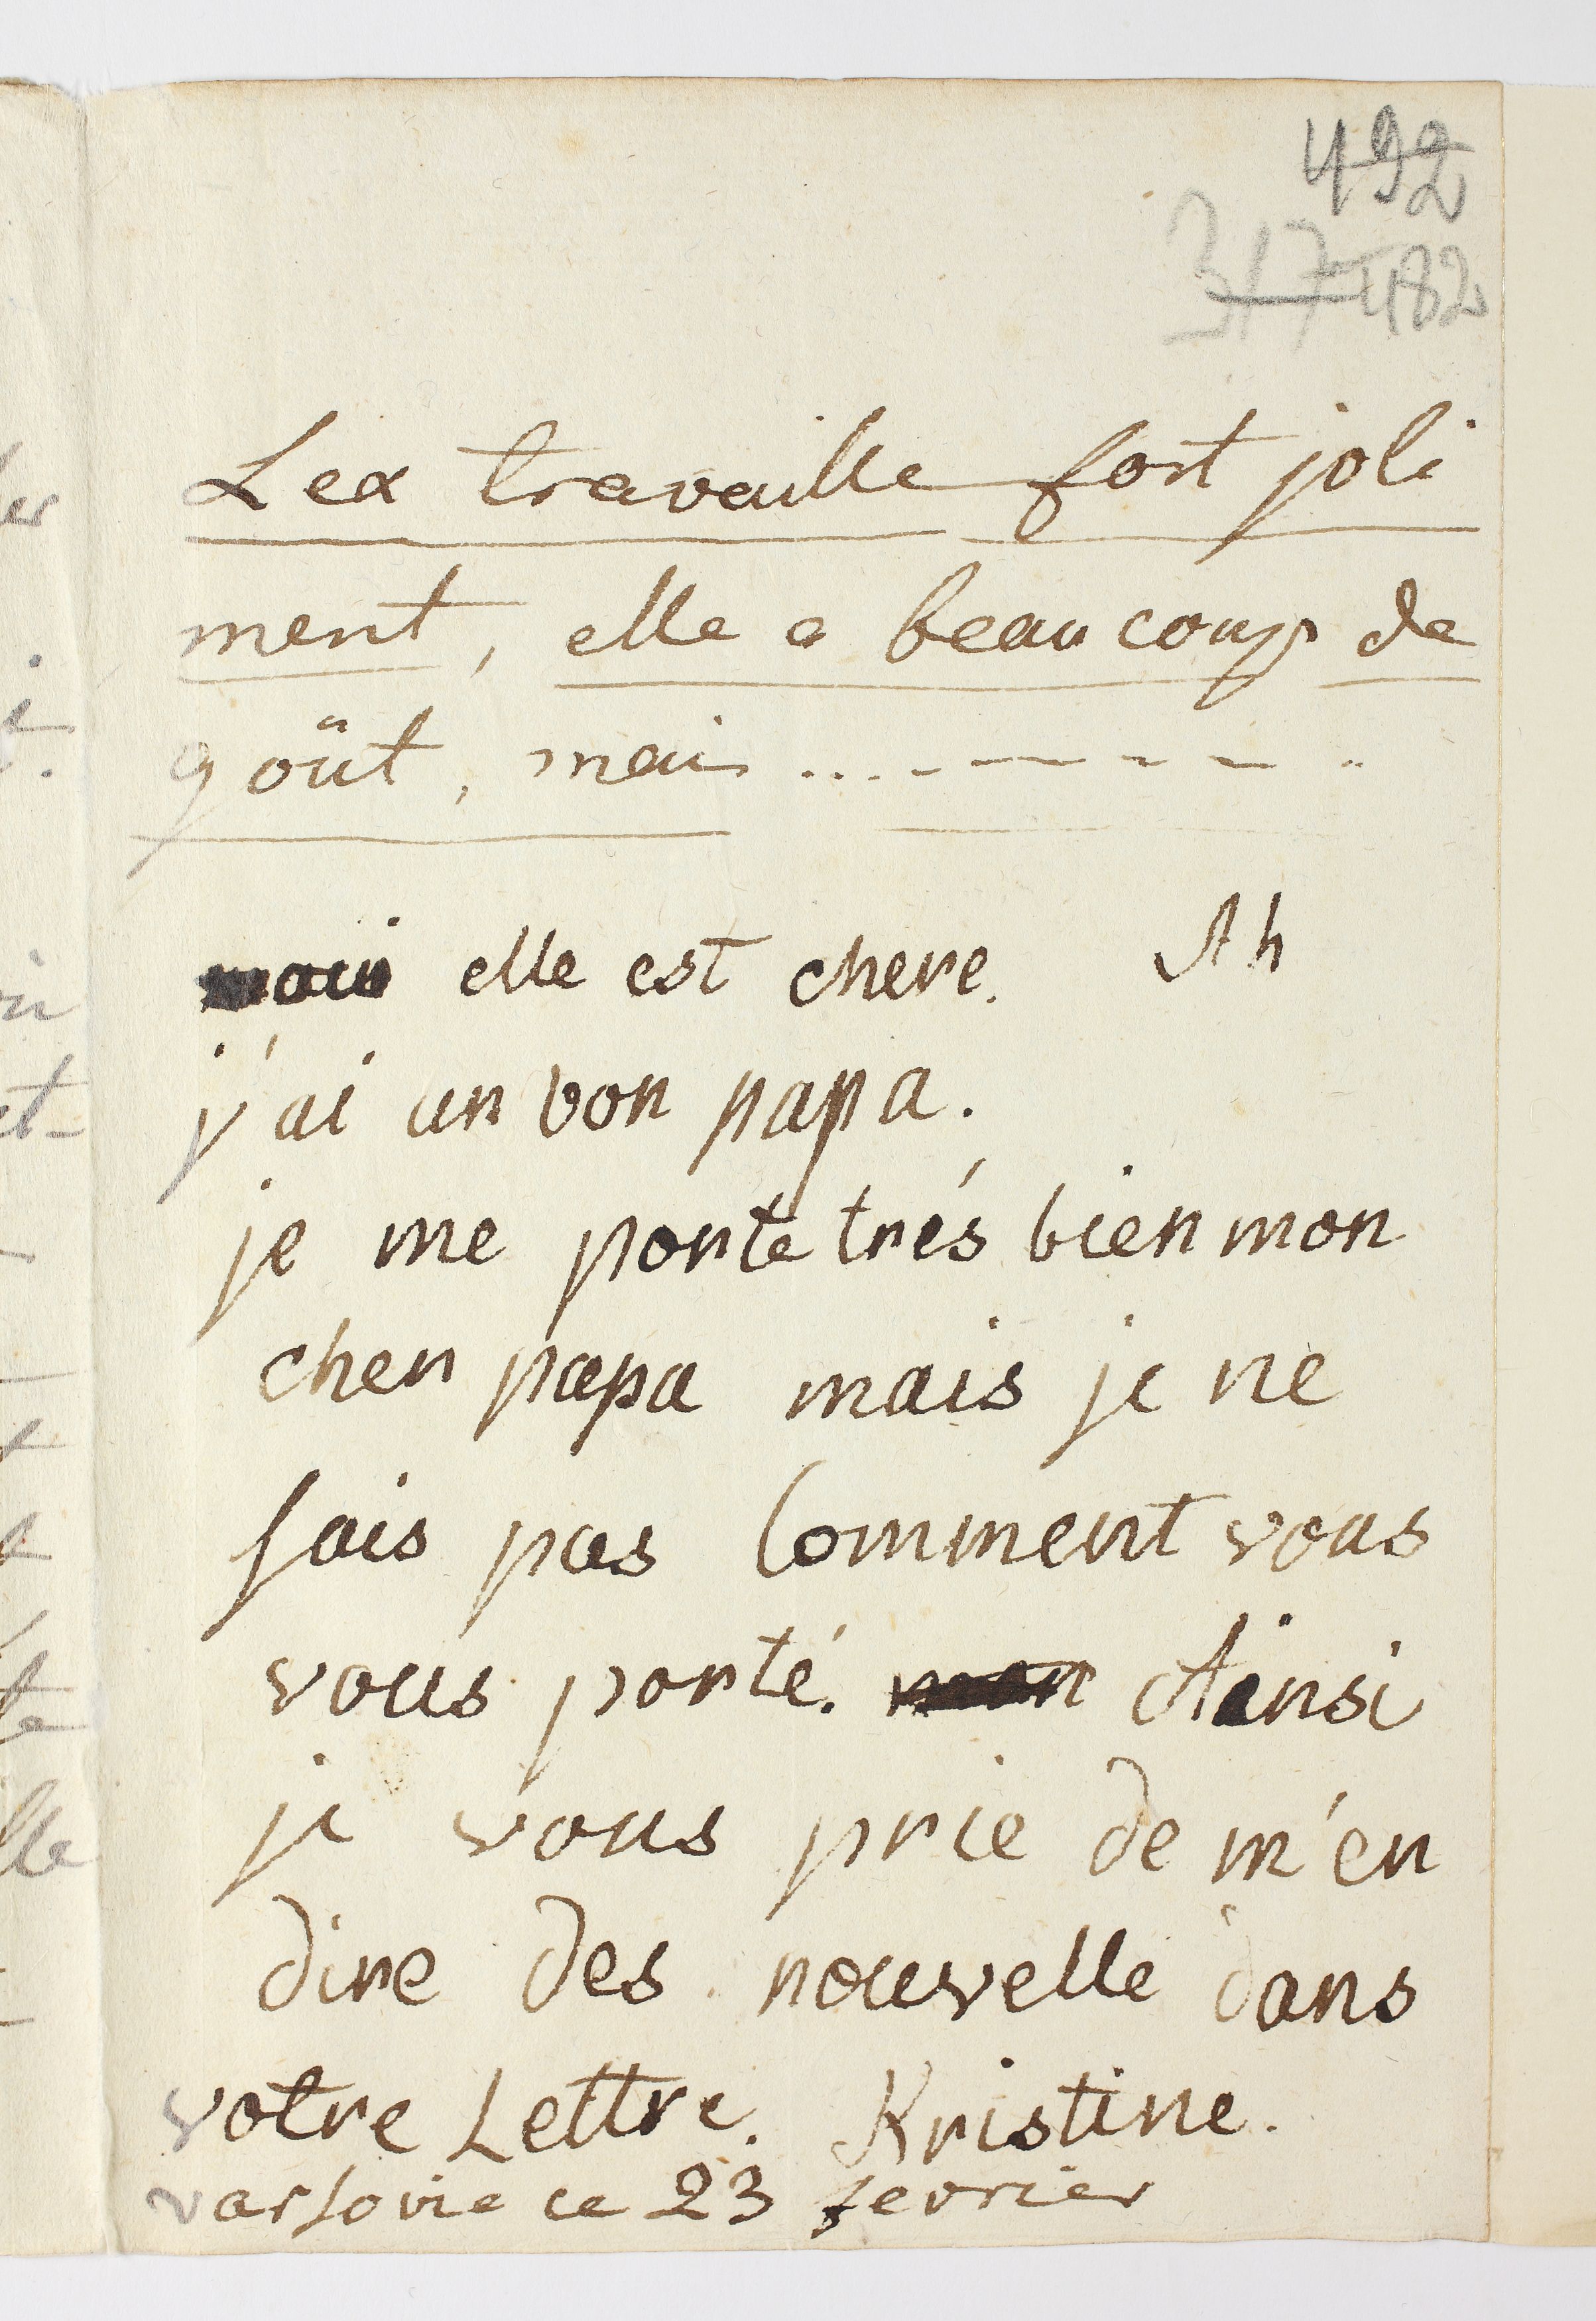 492
317 482
Lex travaille fort joli
ment, elle a beaucoup de
goût, mais ....- - - - - - ..
mais elle est chere. Ah
j'ai un bon papa.
je me porte trés bien mon
cher papa mais je ne
sais pas Comment vous
vous porté. mon Ainsi
je vous prie de m'en
dire des nouvelle dans
votre Lettre. Kristine.
varsovie ce 23 fevrier